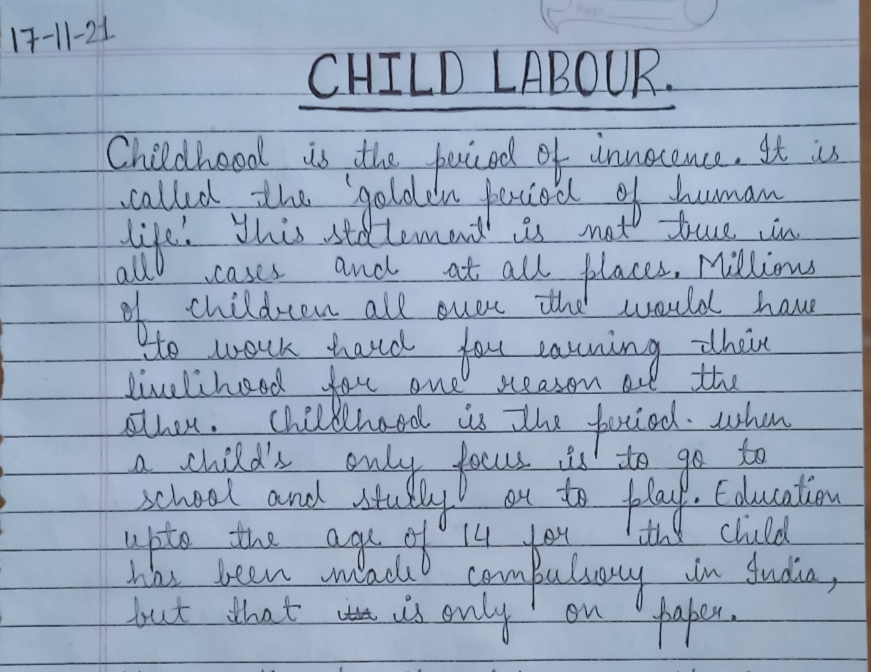 Page
17-11-21
CHILD LABOUR.
Childhood is the period of innocence. It is
called the 'golden period of human
life'. This statement is not true in
all cases and at all places. Millions
of children all over the world have
to work hard for earning their
livelihood for one reason or the
other. Childhood is the period. when
a child's only focus is to go to
school and study or to play. Education
upto the age of 14 for the child
has been made compulsory in India,
but that is only on paper.